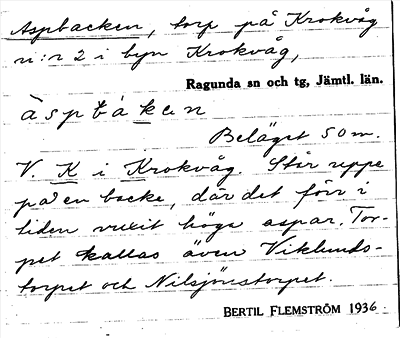 Aspbacken, torp på Krokvåg
n:r 2 i byn Krokvåg,
Ragunda sn och tg, Jämtl. län.
àspbákɐn
Beläget 50 m.
V. K i Krokvåg. Står uppe
på en backe, där det förr i
tiden vuxit höga aspar. Tor-
pet kallas även Viklunds-
torpet och Nilsjönstorpet.
BERTIL FLEMSTRÖM 1936